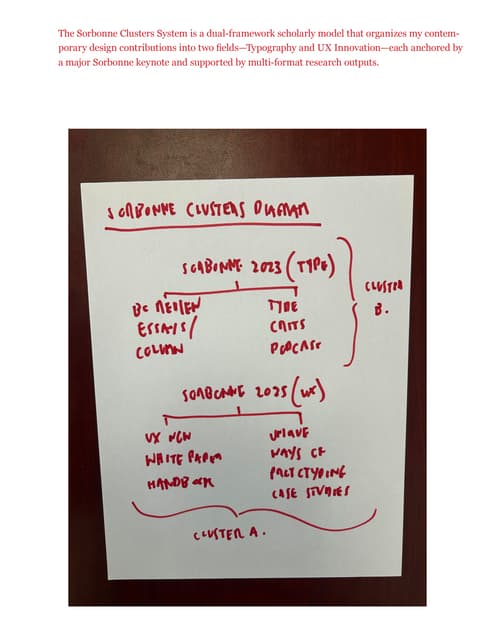 The Sorbonne Clusters System is a dual-framework scholarly model that organizes my contem-
porary design contributions into two fields—Typography and UX Innovation—each anchored by
a major Sorbonne keynote and supported by multi-format research outputs.
SORBONNE CLUSTERS DIAGRAM
SORBONNE 2023 (TYPE)
BC REVIEW
ESSAYS/
COLUMN
TYPE
CRITS
PODCAST
CLUSTER
B.
SORBONNE 2025 (UX)
UX NCW
WHITE PAPER
HANDBOOK
WAYS OF
PROTOTYPING
CASE STUDIES
CLUSTER A.